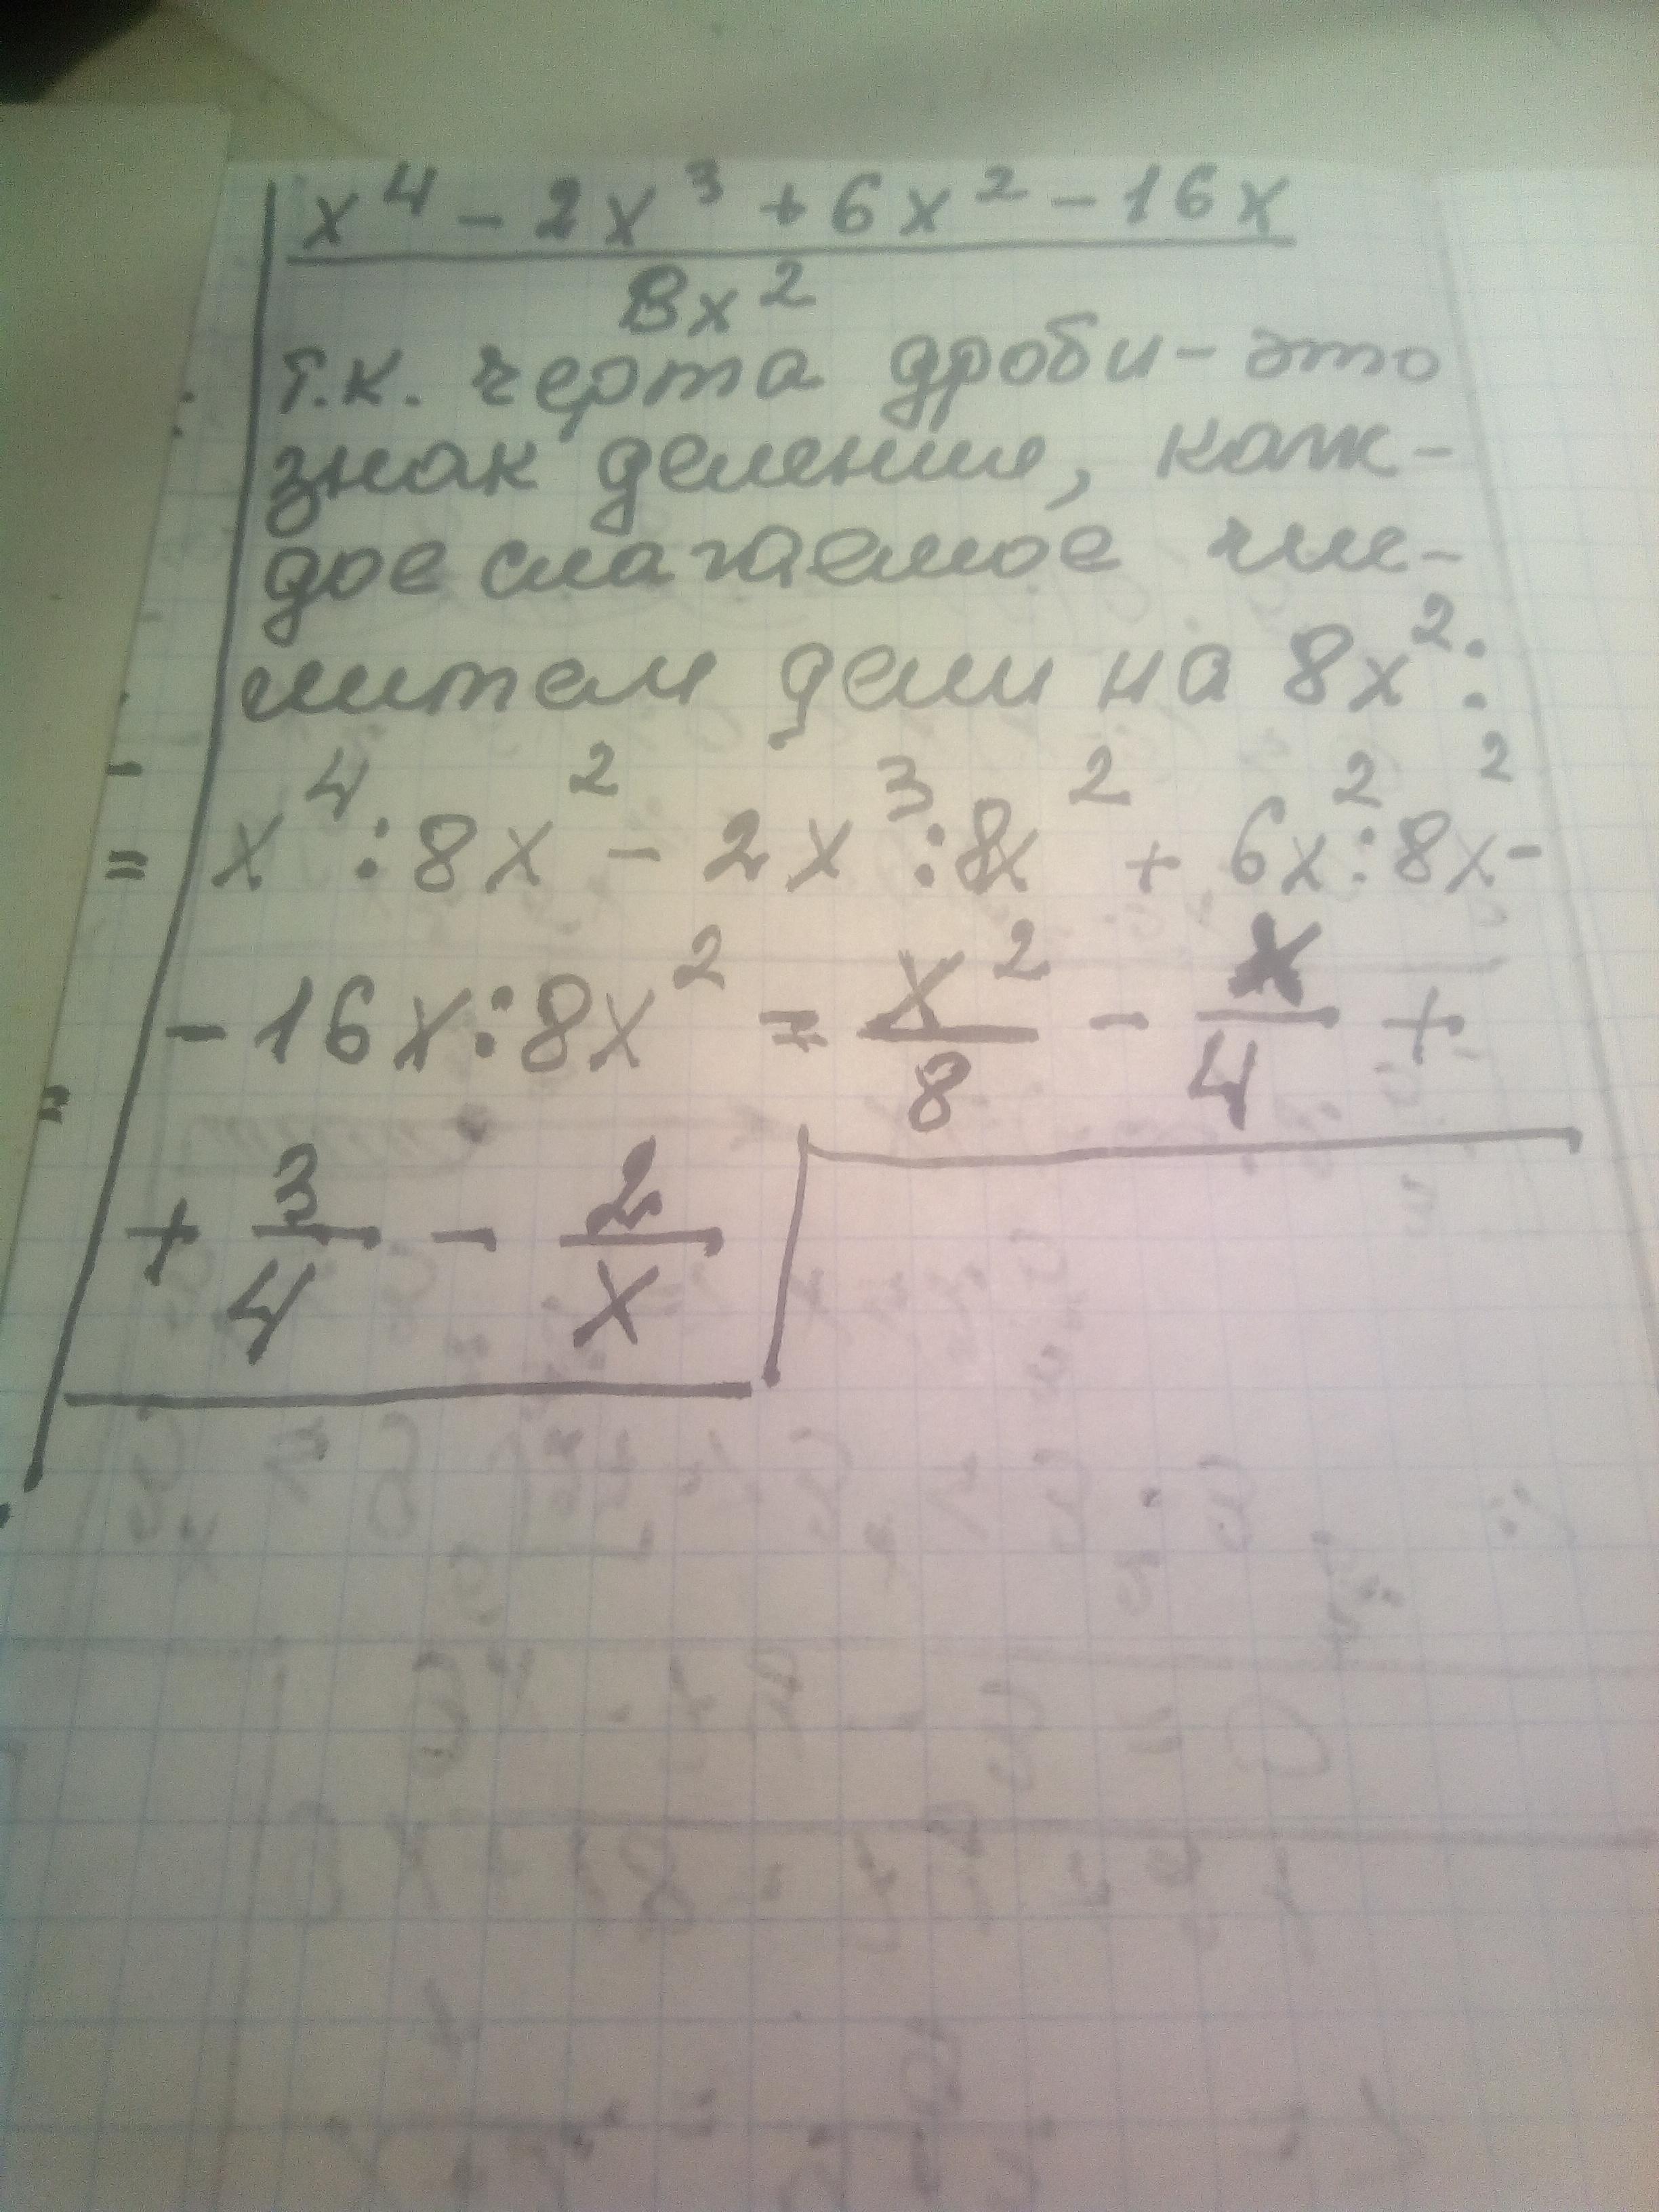 x⁴ - 2x³ + 6x² - 16x
8x²
т.к. черта дроби - это
знак деления, каж-
дое слагаемое чис-
лителя дели на 8x²:
= x⁴ : 8x² - 2x³ : 8x² + 6x² : 8x² -
- 16x : 8x² = x²/8 - x/4 +
+ 3/4 - 2/x